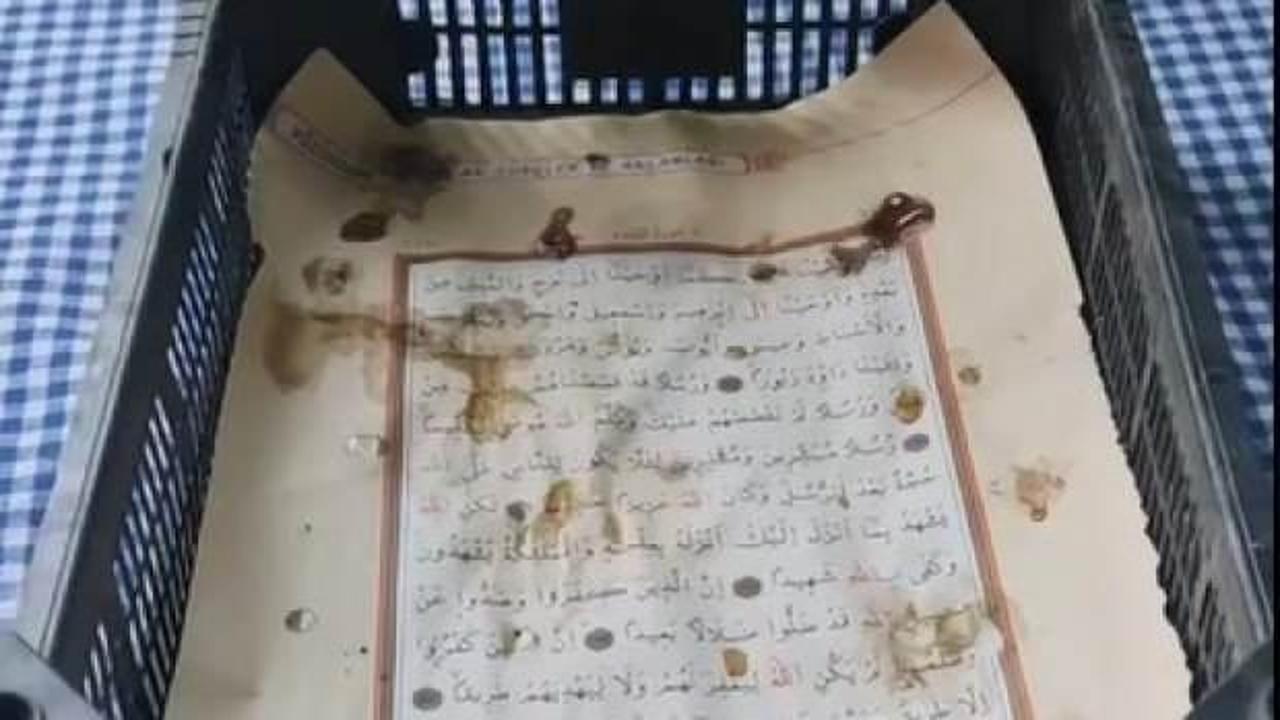 اَوْحَيْنَٓا اِلٰى نُوحٍ وَالنَّبِيّٖنَ مِنْ
بَعْدِهٖ وَاَوْحَيْنَٓا اِلٰٓى اِبْرٰهٖيمَ وَاِسْمٰعٖيلَ
وَالْاَسْبَاطِ وَعٖيسٰى وَاَيُّوبَ وَيُونُسَ وَهٰرُونَ
وَاٰتَيْنَا دَاوُ۫دَ زَبُورًا وَرُسُلًا قَدْ قَصَصْنَاهُمْ مِنْ
وَرُسُلًا لَمْ نَقْصُصْهُمْ عَلَيْكَ وَكَلَّمَ اللّٰهُ مُوسٰى تَكْلٖيمًا
رُسُلًا مُبَشِّرٖينَ وَمُنْذِرٖينَ لِئَلَّا يَكُونَ لِلنَّاسِ عَلَى اللّٰهِ
حُجَّةٌ بَعْدَ الرُّسُلِ وَكَانَ اللّٰهُ عَزٖيزًا لٰكِنِ اللّٰهُ
يَشْهَدُ بِمَٓا اَنْزَلَ اِلَيْكَ اَنْزَلَهُ بِعِلْمِهٖ وَالْمَلٰٓئِكَةُ يَشْهَدُونَ
وَكَفٰى بِاللّٰهِ شَهٖيدًا اِنَّ الَّذٖينَ كَفَرُوا وَصَدُّوا عَنْ
اللّٰهِ قَدْ ضَلُّوا ضَلَالًا بَعٖيدًا اِنَّ الَّذٖينَ كَفَرُوا
وَظَلَمُوا لَمْ يَكُنِ اللّٰهُ لِيَغْفِرَ لَهُمْ وَلَا لِيَهْدِيَهُمْ طَرٖيقًا
اِلَّا طَرٖيقَ